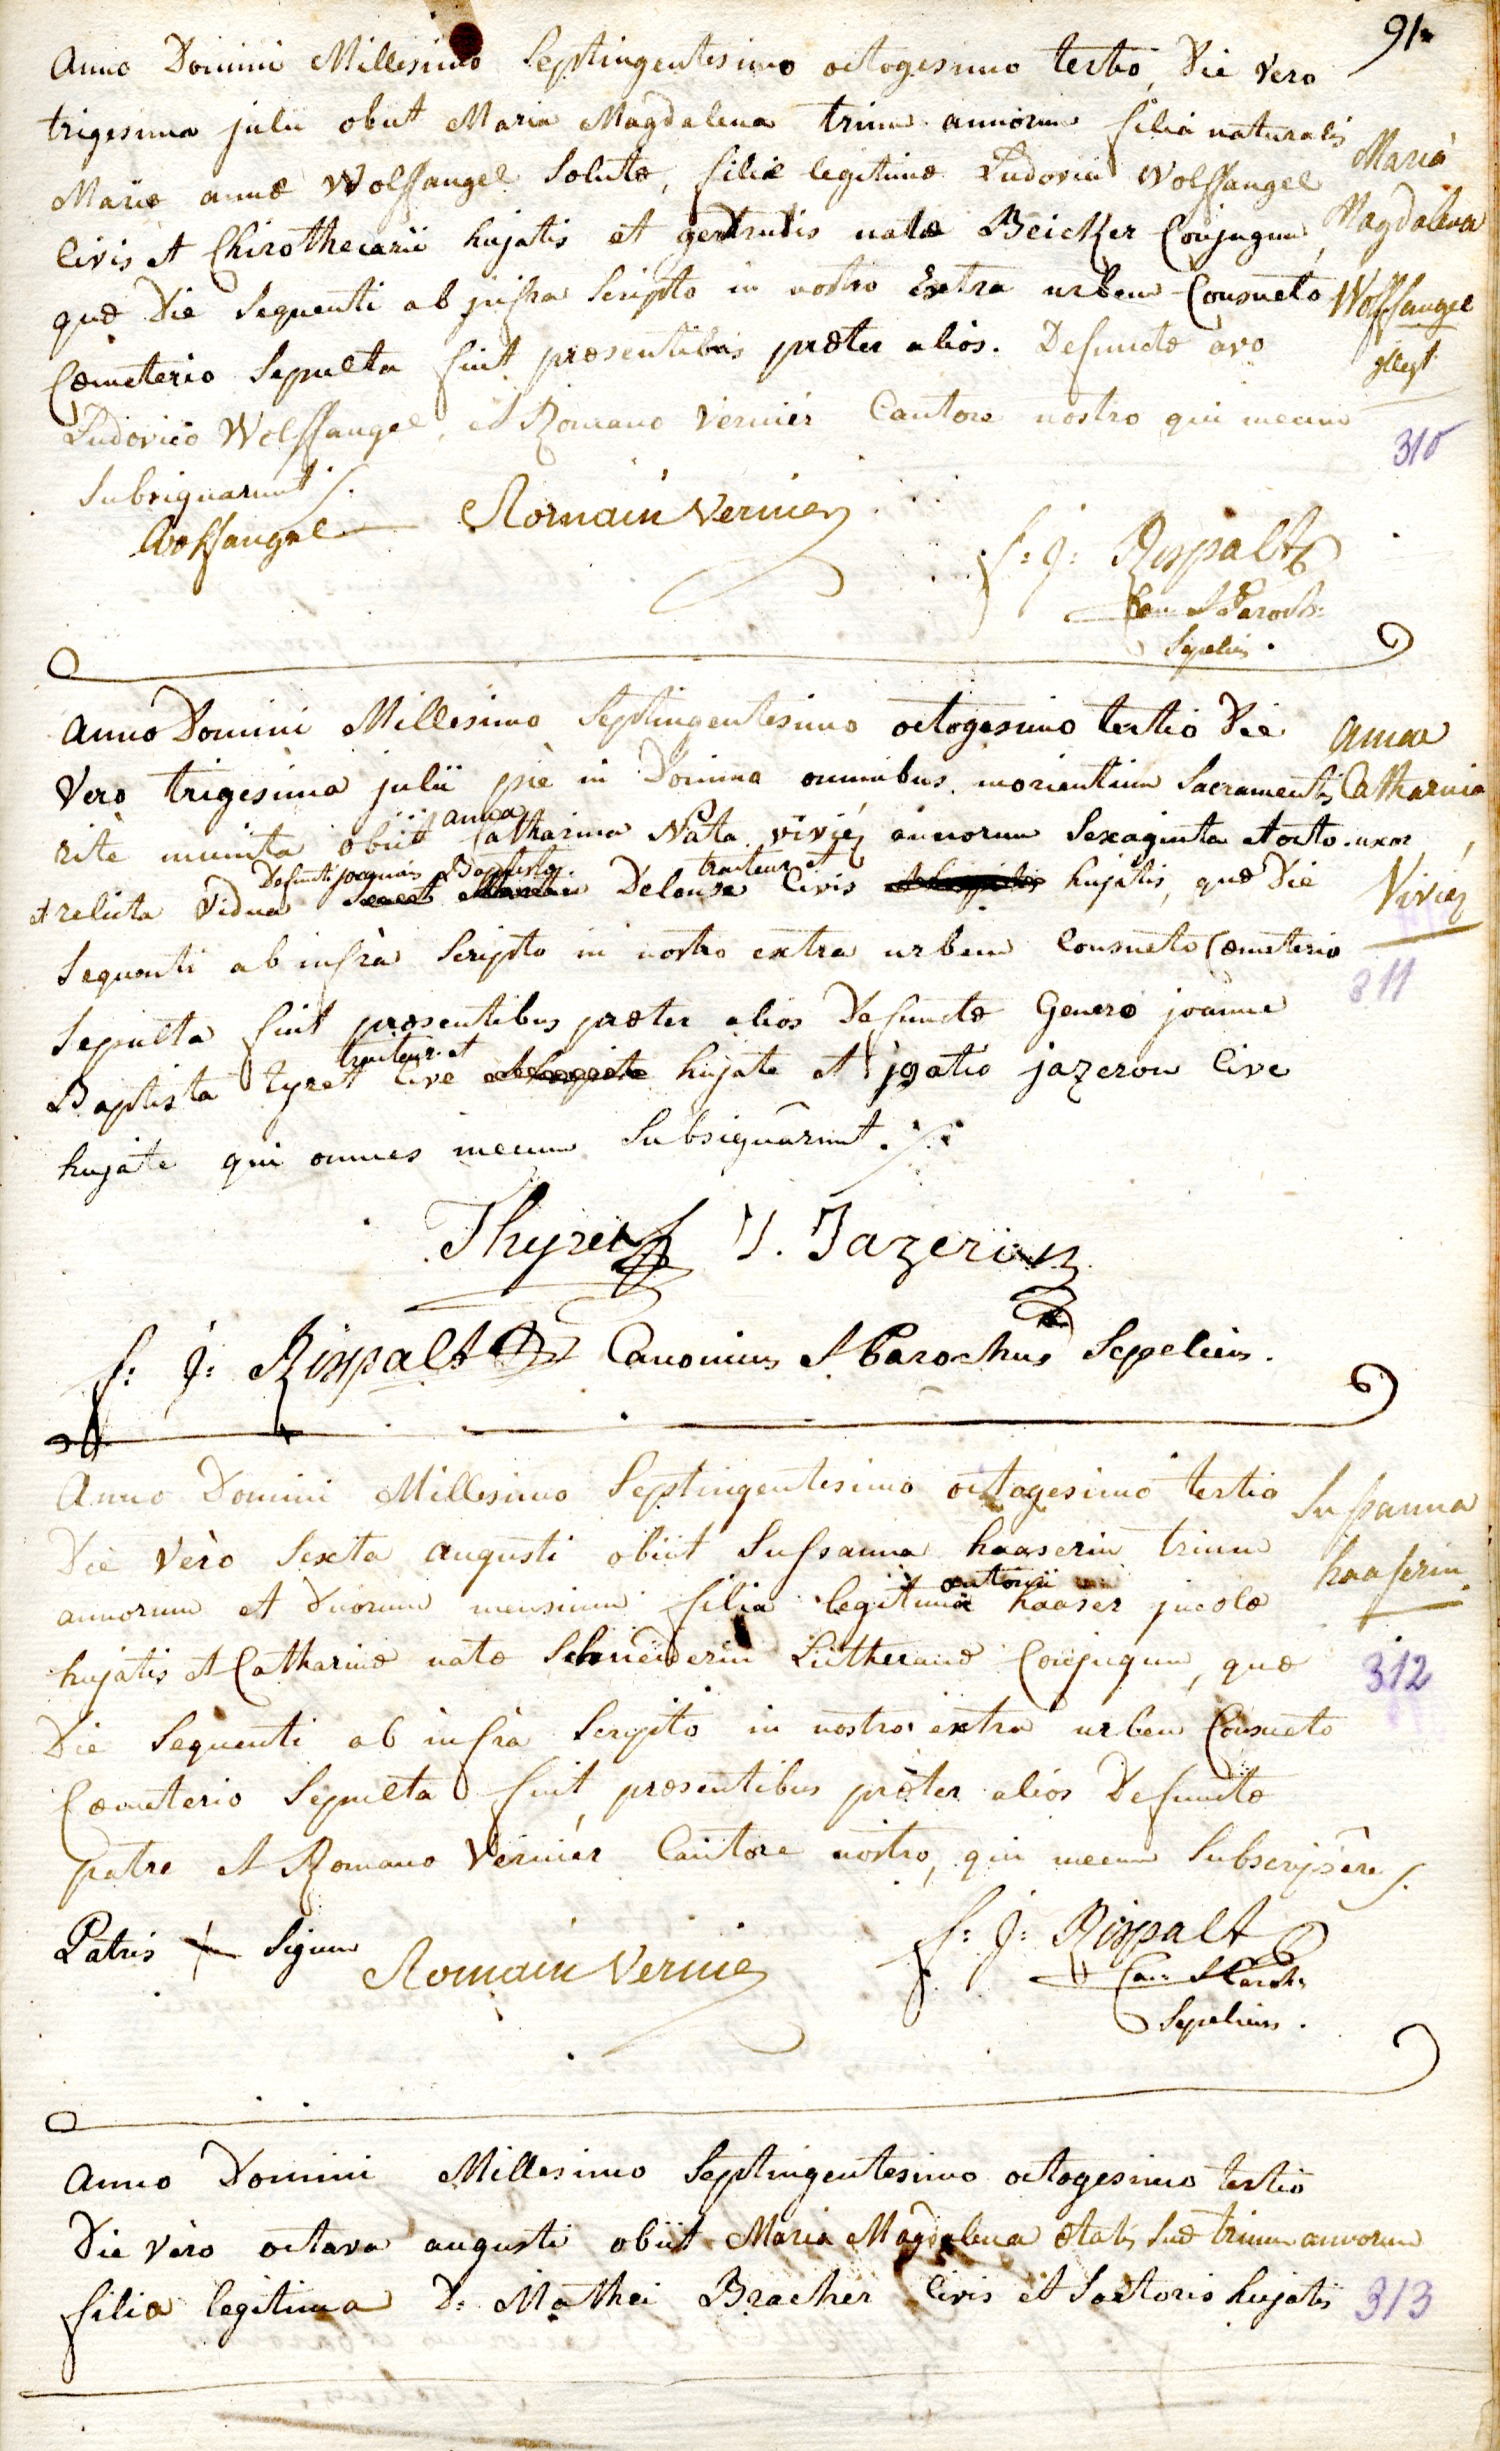 91
Anno Domini Millesimo Septingentesimo octogesimo tertio, Die vero
trigesima julii obiit Maria Magdalena trium annorum filia naturalis
Mariæ annæ Wolffangel Solutæ, filiæ legitimæ Ludovici Wolffangel
Civis et Chirothecarii hujatis et gertrudis natæ Beicker Conjugum,
quæ Die Sequenti ab infra Scripto in nostro Extra urbem Consueto
Cœmeterio Sepulta fuit præsentibus præter alios. Defunctæ avo
Ludovico Wolffangel, et Romano Vernier Cantore nostro qui mecum
Subsignarunt ./.
Maria
Magdalena
Wolffangel
illegt
310
Wolffangel Romain Vernier
f: J: Rispalt
Can et Paroch:
Sepeliens.
Anno Domini Millesimo Septingentesimo octogesimo tertio Die
Vero trigesima julii piè in Domino omnibus morientium Sacramentis
anna
ritè munita obiit Catharina Nata viviéz annorum Sexaginta et octo. uxor
Defuncti Baptista traiteur et
et relicta vidua Delouse Civis hujatis, quæ Die
Sequenti ab infrà Scripto in nostro extra urbem Consueto Cœmeterio
Sepulta fuit præsentibus præter alios Defunctæ Genero joanne
traiteur et
Baptista tyret Cive hujate et igatio jazeron Cive
hujate qui omnes mecum Subsignarunt ./.
Anna
Catharina
Viviéz
311
Thyret J. Jazeron
f: J: Rispalt Canonicus et Parochus Sepeliens.
Anno Domini Millesimo Septingentesimo octogesimo tertio
Die vèro Sexta augusti obiit Sussanna haaserin trium
antonii
annorum et Duorum mensium filia legitima haaser incolæ
hujatis et Catharinæ natæ Schneiderin Lutheranæ Conjugum, quæ
Die Sequenti ab infrà Scripto in nostro extra urbem Consueto
Cœmeterio Sepulta fuit præsentibus præter alios Defunctæ
patre et Romano Vernier Cantore nostro, qui mecum Subscripsere ./.
Sussanna
haaserin
312
Patris + Signum Romain Vernier
f: J: Rispalt
Can: et Paroch:
Sepeliens.
Anno Domini Millesimo Septingentesimo octogesimo tertio
Die vèro octava augusti obiit Maria Magdalena ætatis suæ trium annorum
filia legitima D: Mathei Bracher Civis et Sartoris hujatis
313